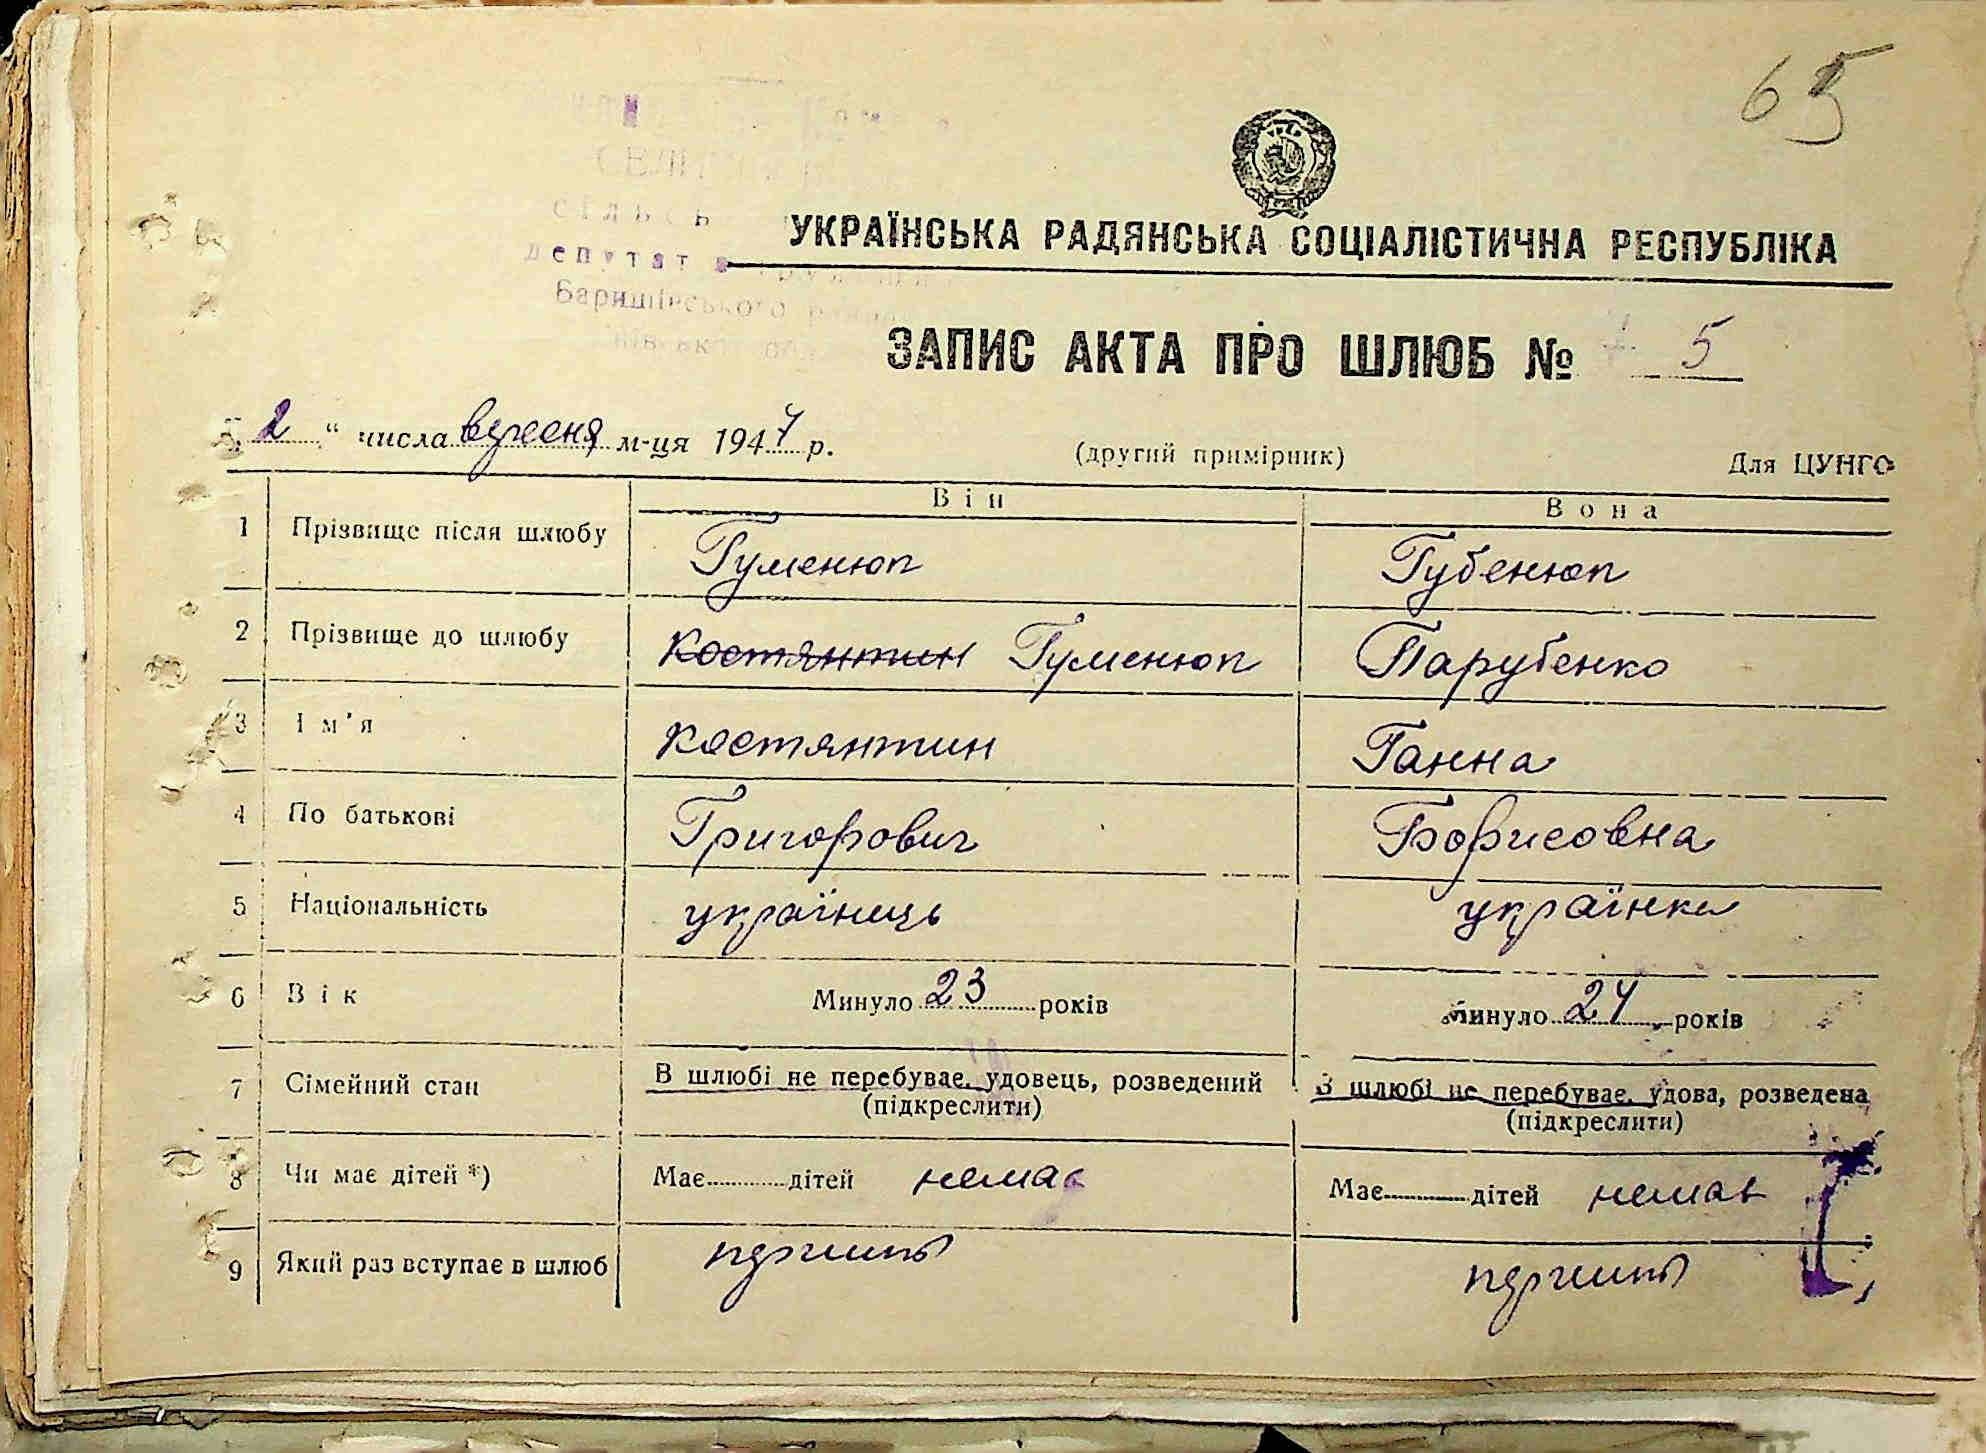 65
УКРАЇНСЬКА РАДЯНСЬКА СОЦІАЛІСТИЧНА РЕСПУБЛІКА
депутат
Баришівського
ЗАПИС АКТА ПРО ШЛЮБ № 5
2 “ числа вересня м-ця 1947 р.
(другий примірник)
Для ЦУНГО
Він Вона
1 Прізвище після шлюбу Гуменюк Губенюк
2 Прізвище до шлюбу Костянтин Гуменюк Парубенко
3 Ім’я Костянтин Ганна
4 По батькові Григорович Борисовна
5 Національність україниць українка
6 Вік Минуло 23 років Минуло 24 років
7 Сімейний стан В шлюбі не перебуває, удовець, розведений В шлюбі не перебуває, удова, розведена
(підкреслити) (підкреслити)
8 Чи має дітей *) Має дітей немає Має дітей немає
9 Який раз вступає в шлюб